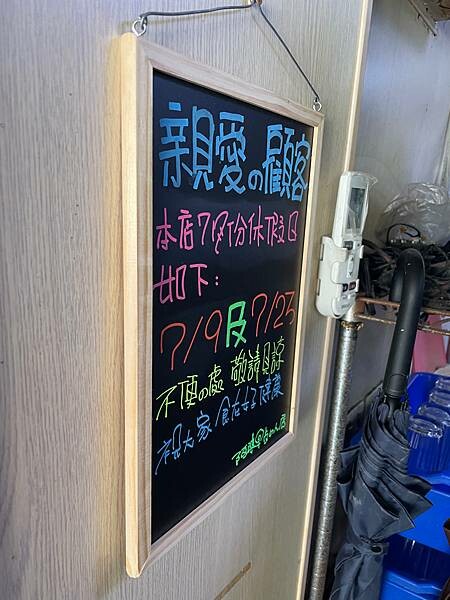 親愛の顧客
本店7月份休假日
如下：
7/9及7/23
不便の處 敬請見諒
祝大家 食在好健康